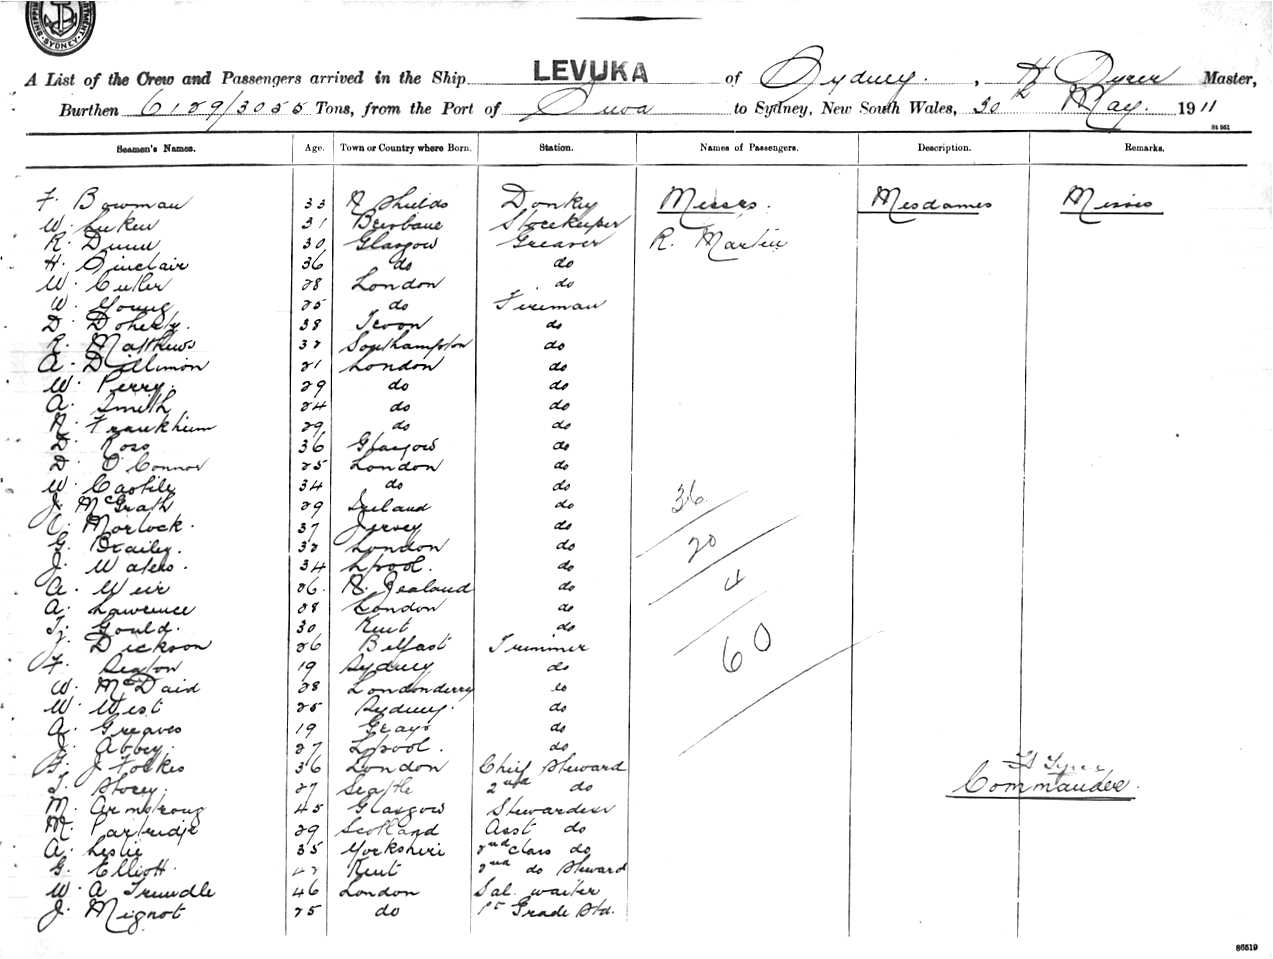 SYDNEY
A List of the Crew and Passengers arrived in the Ship LEVUKA of Sydney. , H Master,
Burthen 6129/3055 Tons, from the Port of Suva to Sydney, New South Wales, 30 May. 1911
Seamen's Names. Age. Town or Country where Born. Station. Names of Passengers. Description. Remarks.
F. Bowman 33 N Shields Donky Messrs. Mesdames Misses
W. 31 Brisbane Storekeeper
R. Dunn 30 Glasgow Greaser R. Martin
H. Sinclair 36 do do
W. Cutler 28 London do
W. Young 25 do Fireman
D. Doherty. 38 Troon do
R. Matthews 32 Southampton do
A. Dillimon 21 London do
W. Perry. 29 do do
A. Smith 24 do do
Frankhum 29 do do
D. Ross 36 Glasgow do
D. O'Connor 25 London do
W. Castile 34 do do
J. McGrath 29 Ireland do 36
C. Morlock. 37 Jersey do
G. Brailey. 32 London do 20
J. Waters. 34 L'pool. do
A. Weir 26. N. Zealand do 4
A. Lawrence 28 London do
T. Gould. 30 Kent do
J. Dickson 26 Belfast Trimmer 60
F. Sexton 19 Sydney do
W. McDaid 28 Londonderry do
W. West 25 Sydney. do
A. Greaves 19 Grays do
J. Abbey. 27 L'pool. do
G. J Folkes 36 London Chief Steward
T. Storey. 27 Seattle 2nd do Commander.
M. Armstrong 45 Glasgow Stewardess
M. Partridge 29 Scotland Asst do
A. Leslie 35 Yorkshire 2nd class do
G. Elliott. 42 Kent 2nd do Steward
W. A Trundle 46 London Sal. waiter
J. Mignot 25 do 1st Grade Std.
86519